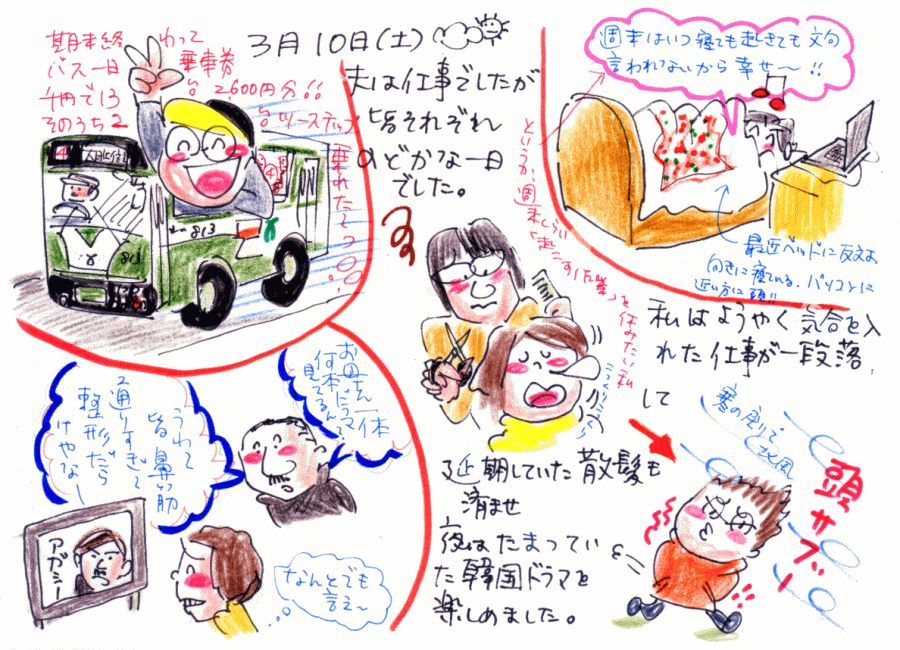 3月10日(土)
夫は仕事でしたが
皆それぞれ
のどかな一日
でした。
期末終わって
バス一日乗車券
4冊で13
そのうち2
2600円分!!
ノーステップ
乗れたっつ
813
813
週末はいつ寝ても起きても文句
言われてないから幸せ〜!!
最近ベッドに反対
向きに寝ている。パソコンに
近い方に頭!!
というか、週末くらい
「起こす」仕事を休みたい私
私はようやく気合を入
れた仕事が一段落
して
延朝していた散髪も
済ませ
夜はたまってい
た韓国ドラマを
楽しめました。
お母さん一体
何本ドラマ
見てる
うわっ
皆鼻筋
通りすぎて
整形だら
けやなー
アガシー
なんとでも
言え〜
寒の戻りで
北風
頭サブー